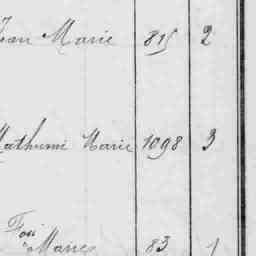 Jean Marie 815 2
Mathurine Marie 1098 3
Marie 83 1